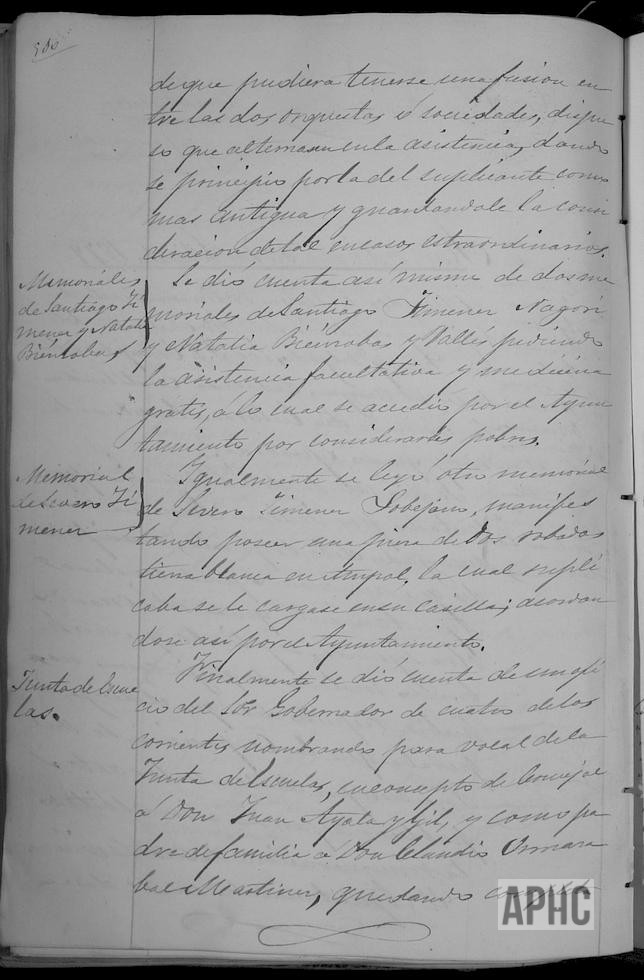 506
de que pudiera tenerse una fusion en
tre las dos orquestas ó sociedades, dispu
so que alternasen en la asistencia, dando
se principio por la del suplicante como
mas antigua y guardandole la consi
deracion de tal en casos estraordinarios.
Memoriales
de Santiago Ji
menez y Natalia
Bienzobas
Se dió cuenta asi mismo de dos me
moriales de Santiago Jimenez Nagore
y Natalia Bienzobas y Vallés pidiendo
la asistencia facultativa y medicina
gratis, á lo cual se accedió por el Ayun
tamiento por considerarles pobres.
Memorial
de Severo Ji
menez
Igualmente se leyó otro memorial
de Severo Jimenez Lobejano, manifes
tando poseer una pieza de dos robadas
tierra blanca en Ampol, la cual supli
caba se le cargase en su casilla; acordan
dose así por el Ayuntamiento.
Junta de Escue
las.
Finalmente se dió cuenta de un ofi
cio del Sor Gobernador de cuatro de los
corrientes nombrando para vocal de la
Junta de Escuelas, en concepto de Concejal
á Don Juan Ayala y Gil, y como pa
dre de familia a Don Claudio
bal Martinez, quedando
APHC